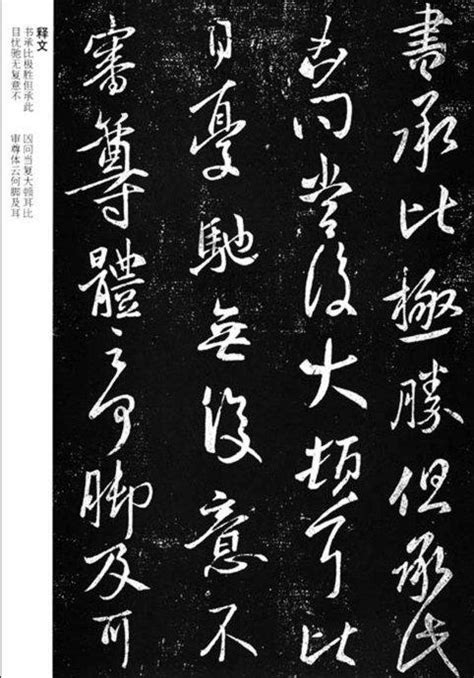 書承比極勝但承此
凶問當復大頓耳比
目憂馳無復意不
審尊體云何脚及耳
释文
书承比极胜但承此 凶问当复大顿耳比
目忧驰无复意不 审尊体云何脚及耳